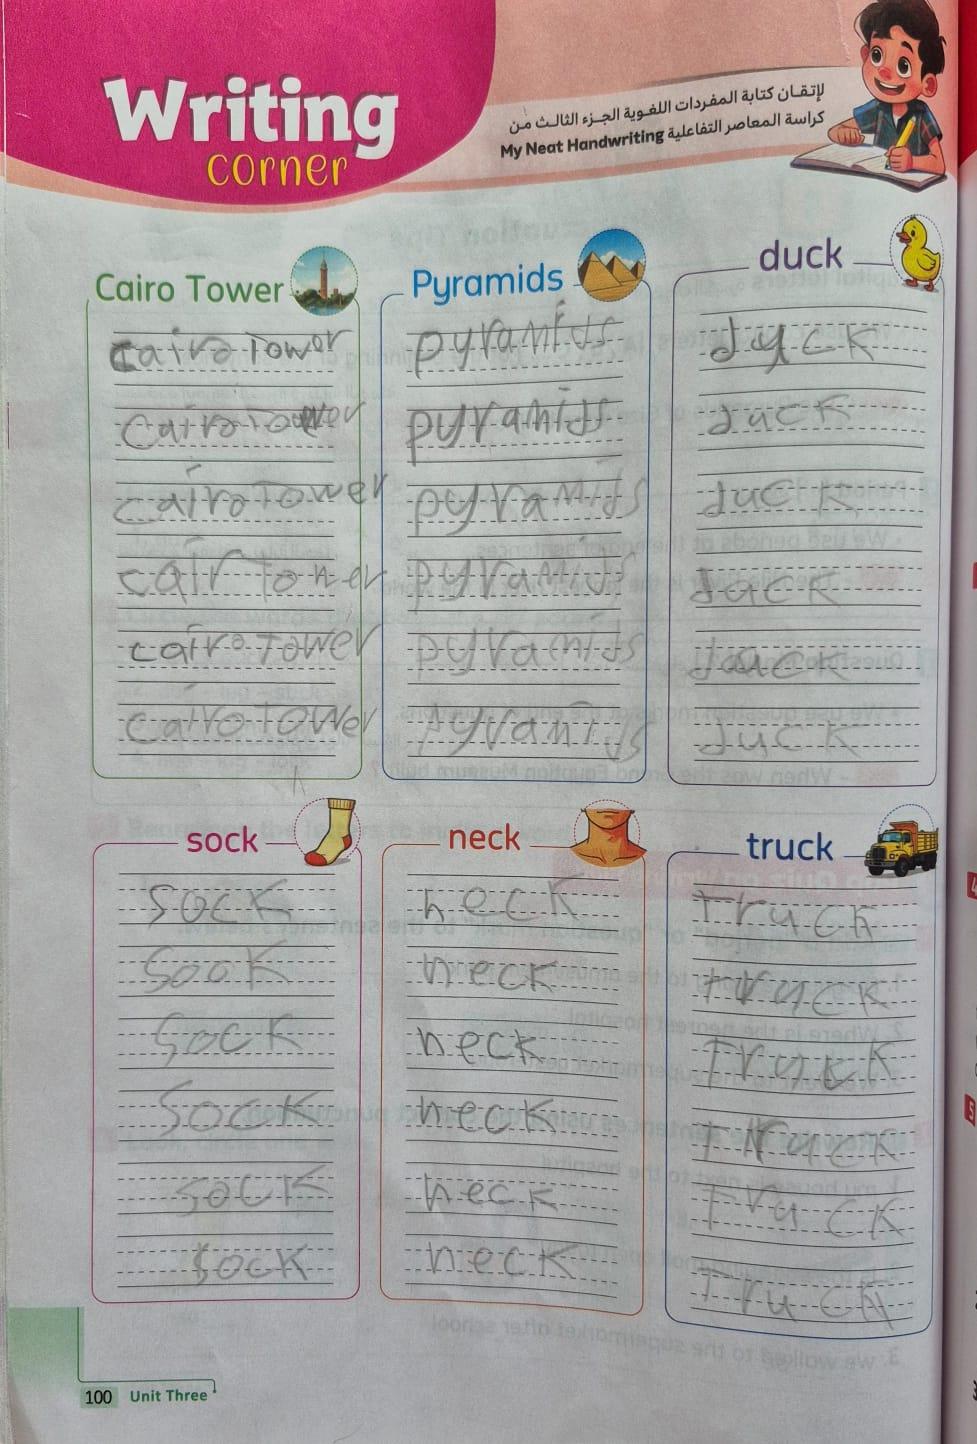 Writing
corner
لإتقان كتابة المفردات اللغوية الجزء الثالث من
كراسة المعاصر التفاعلية My Neat Handwriting
Cairo Tower
cairo Tower
Cairo Tower
cairo Tower
cair Tower
cairo Tower
cairo Tower
Pyramids
pyramids
pyramids
pyramids
pyramids
pyramids
Pyramids
duck
duck
duck
duck
duck
duck
duck
sock
sock
sook
sock
sock
sock
sock
neck
neck
neck
neck
neck
neck
neck
truck
Truck
truck
Trukk
Truck
Truck
Truck
100 Unit Three